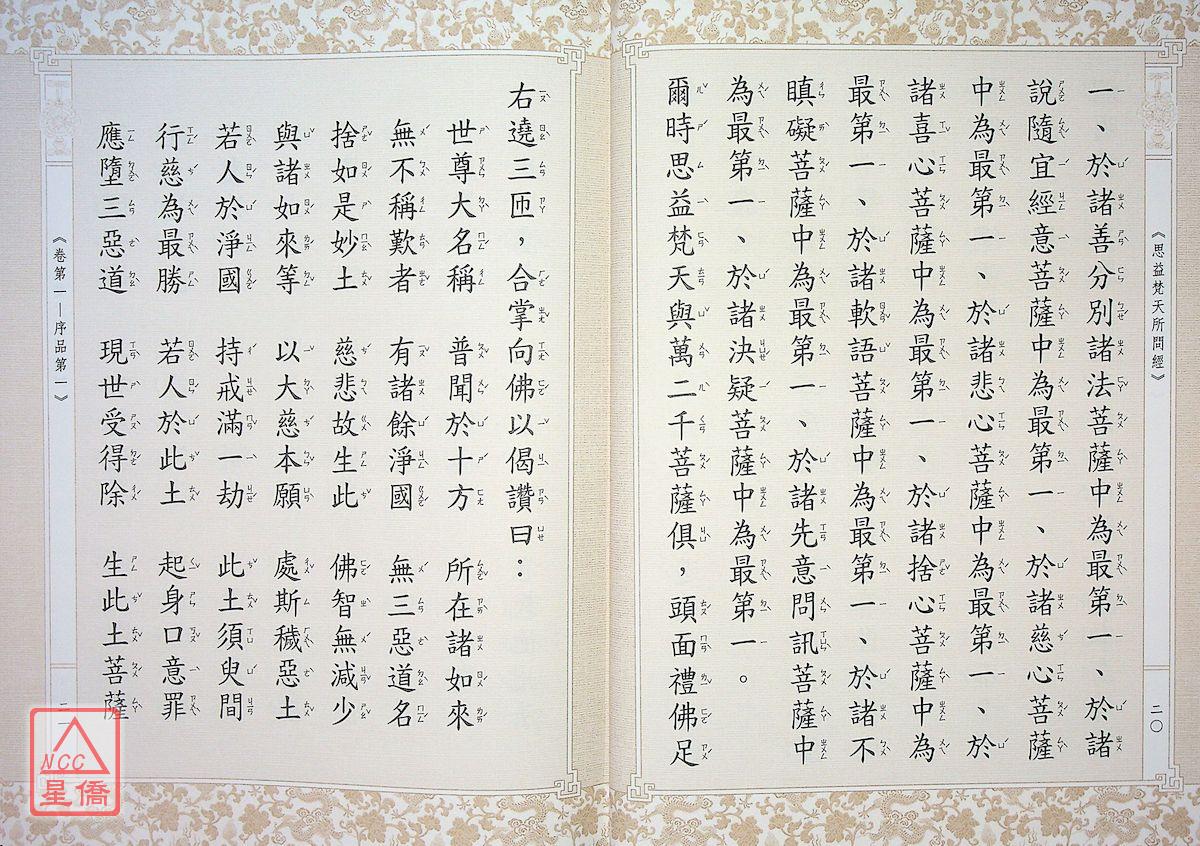 《思益梵天所問經》
二〇
一、於諸善分別諸法菩薩中為最第一、於諸
說隨宜經意菩薩中為最第一、於諸慈心菩薩
中為最第一、於諸悲心菩薩中為最第一、於
諸喜心菩薩中為最第一、於諸捨心菩薩中為
最第一、於諸軟語菩薩中為最第一、於諸不
瞋礙菩薩中為最第一、於諸先意問訊菩薩中
為最第一、於諸決疑菩薩中為最第一。
爾時思益梵天與萬二千菩薩俱，頭面禮佛足
右遶三匝，合掌向佛以偈讚曰：
世尊大名稱　普聞於十方　所在諸如來
無不稱歎者　有諸餘淨國　無三惡道名
捨如是妙土　慈悲故生此　佛智無減少
與諸如來等　以大慈本願　處斯穢惡土
若人於淨國　持戒滿一劫　此土須臾間
行慈為最勝　若人於此土　起身口意罪
應墮三惡道　現世受得除　生此土菩薩
《卷第一—序品第一》
二一
NCC
星僑